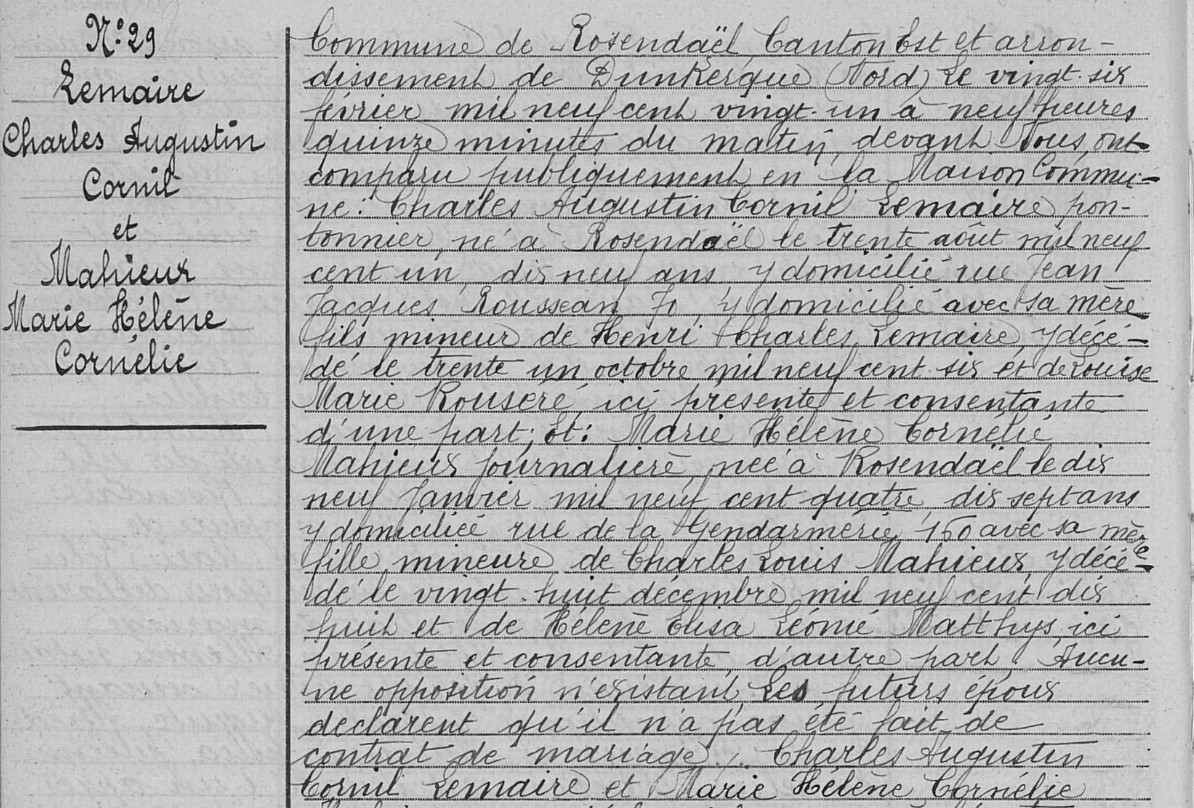 N° 29
Lemaire
Charles Augustin
Cornil
et
Mahieux
Marie Hélène
Cornélie
Commune de Rosendaël Canton Est et arron-
dissement de Dunkerque (Nord) Le vingt-six
février mil neuf cent vingt-un à neuf heures
quinze minutes du matin, devant Nous, ont
comparu publiquement en la Maison Commu-
ne: Charles Augustin Cornil Lemaire, pon-
tonnier, né à Rosendaël le trente août mil neuf
cent un, dix neuf ans y domicilié rue Jean
Jacques Rousseau 70, y domicilié avec sa mère
fils mineur de Henri Charles Lemaire, y décé-
dé le trente un octobre mil neuf cent six et de Louise
Marie Rouseré, ici présente et consentante
d'une part; Et: Marie Hélène Cornélie
Mahieux journalière, née à Rosendaël le dix
neuf Janvier mil neuf cent quatre, dix sept ans
y domiciliée rue de la Gendarmerie, 150 avec sa mère
fille mineure de Charles Louis Mahieux, y décé-
dé le vingt-huit décembre mil neuf cent dix
huit et de Hélène Elisa Léonie Matthys, ici
présente et consentante, d'autre part. Aucu-
ne opposition n'existant, Les futurs époux
déclarent qu'il n'a pas été fait de
contrat de mariage. Charles Augustin
Cornil Lemaire et Marie Hélène Cornélie